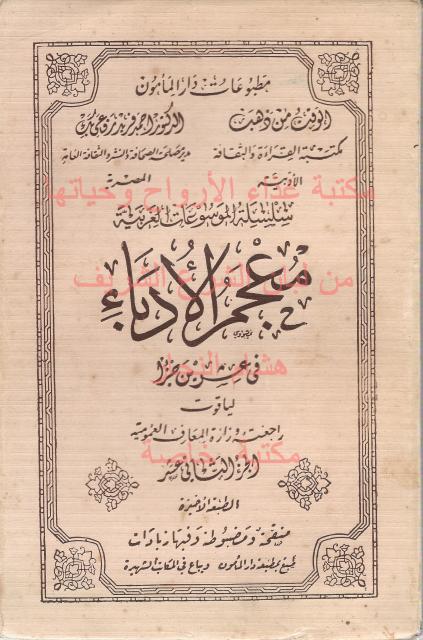 مطبوعات دار المأمون
الوقت من ذهب
الدكتور أحمد فريد رفاعى بك
مكتبة القراءة والثقافة
مدير صلحة الصحافة والنشر والثقافة العامة
الأدبية
المصرية
مكتبة غذاء الأرواح وحياتها
سلسلة الموسوعات العربية
معجم الأدباء
من لسان الشرع الشريف
فى عشرين جزءا
هشام النجار
لياقوت
راجعته وزارة المعارف العمومية
مكتبة خاصة
الجزء الثانى عشر
الطبعة الأخيرة
منقحة ومضبوطة وفيها زيادات
طبع بمطبعة دار المأمون ويباع فى المكاتب الشهيرة